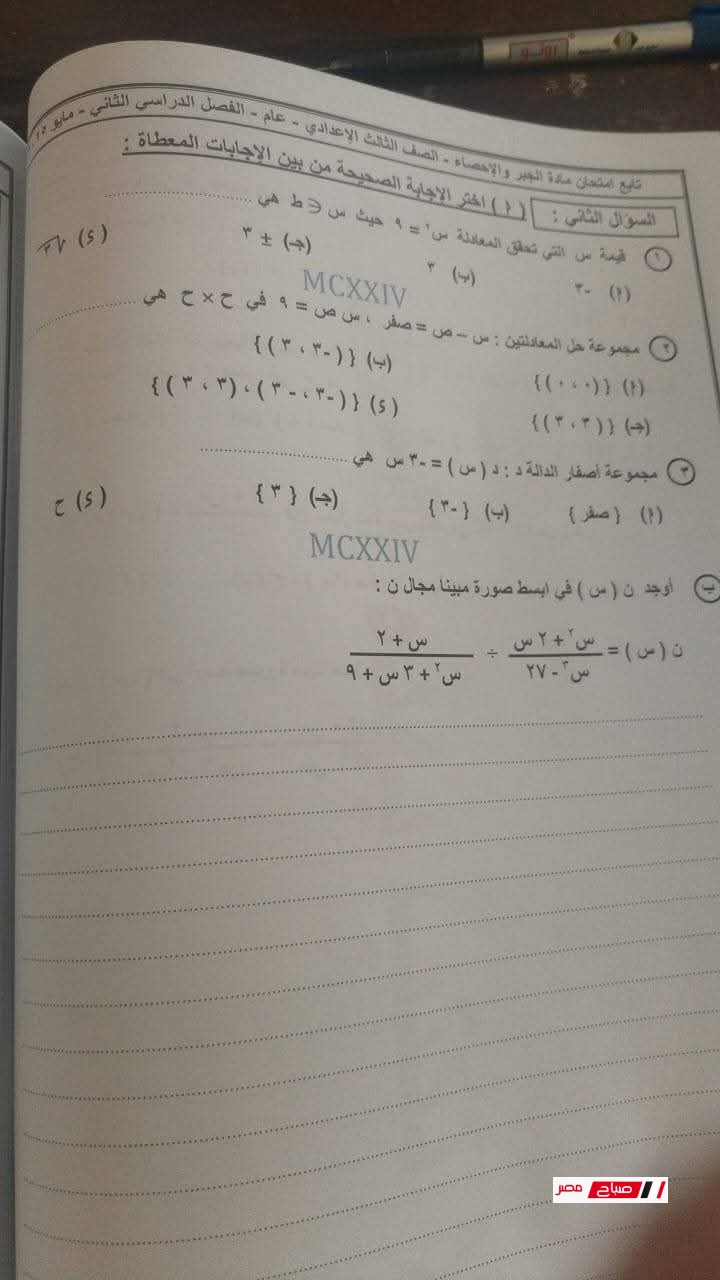 تابع امتحان مادة الجبر والإحصاء - الصف الثالث الإعدادي - عام - الفصل الدراسي الثاني - مايو
السؤال الثاني : (أ) اختر الإجابة الصحيحة من بين الإجابات المعطاة :
١ قيمة س التي تحقق المعادلة س٢ = ٩ حيث س ∈ ط هي ..........
(أ) -٣ (ب) ٣ (جـ) ± ٣ (د)
MCXXIV
٢ مجموعة حل المعادلتين : س - ص = صفر ، س ص = ٩ في ح × ح هي ..........
(أ) {(٠ ، ٠)} (ب) {(-٣ ، ٣)}
(جـ) {(٣ ، ٣)} (د) {(-٣ ، -٣) ، (٣ ، ٣)}
٣ مجموعة أصفار الدالة د : د (س) = -٣ س هي ..........
(أ) {صفر} (ب) {-٣} (جـ) {٣} (د) ح
MCXXIV
ب أوجد ن (س) في ابسط صورة مبينا مجال ن :
ن (س) = س٢ + ٢ س / س٣ - ٢٧ ÷ س + ٢ / س٢ + ٣ س + ٩
صباح مصر